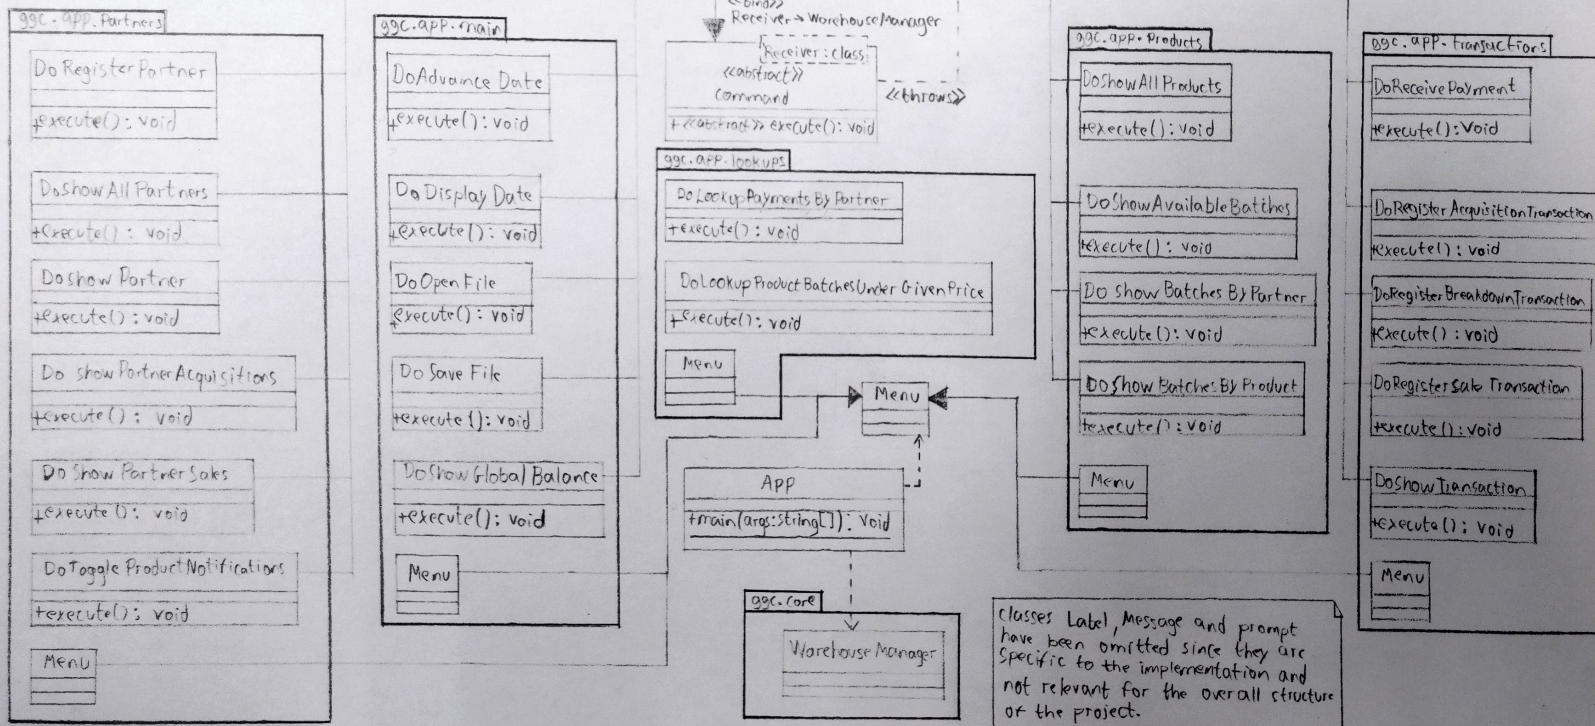 ggc.app.Partners
DoRegisterPartner
+execute(): void
DoShowAllPartners
+execute(): void
DoShow Partner
+execute(): void
Do show PartnerAcquisitions
+execute(): void
Do Show PartnerSales
+execute(): void
DoToggleProductNotifications
+execute(): void
Menu
ggc.app.main
DoAdvance Date
+execute(): void
Do Display Date
+execute(): void
Do Open File
+execute(): void
Do Save File
+execute(): void
DoShow Global Balance
+execute(): void
Menu
<<bind>>
Receiver→WarehouseManager
Receiver: class
<<abstract>>
command
+<<abstract>> execute(): void
<<throws>>
ggc.app.lookups
DoLookupPaymentsByPartner
+execute(): void
DoLookupProductBatchesUnderGivenPrice
+execute(): void
Menu
Menu
App
+main(args:String[]): void
ggc.core
Warehouse Manager
ggc.app.Products
DoShowAllProducts
+execute(): void
DoShowAvailableBatches
+execute(): void
Do Show Batches By Partner
+execute(): void
DoShow Batches By Product
+execute(): void
Menu
ggc.app.transactions
DoReceivePayment
+execute(): Void
DoRegisterAcquisitionTransaction
+execute(): Void
DoRegisterBreakdownTransaction
+execute(): void
DoRegisterSale Transaction
+execute(): void
DoShowTransaction
+execute(): void
Menu
Classes Label, Message and prompt
have been omitted since they are
specific to the implementation and
not relevant for the overall structure
of the project.